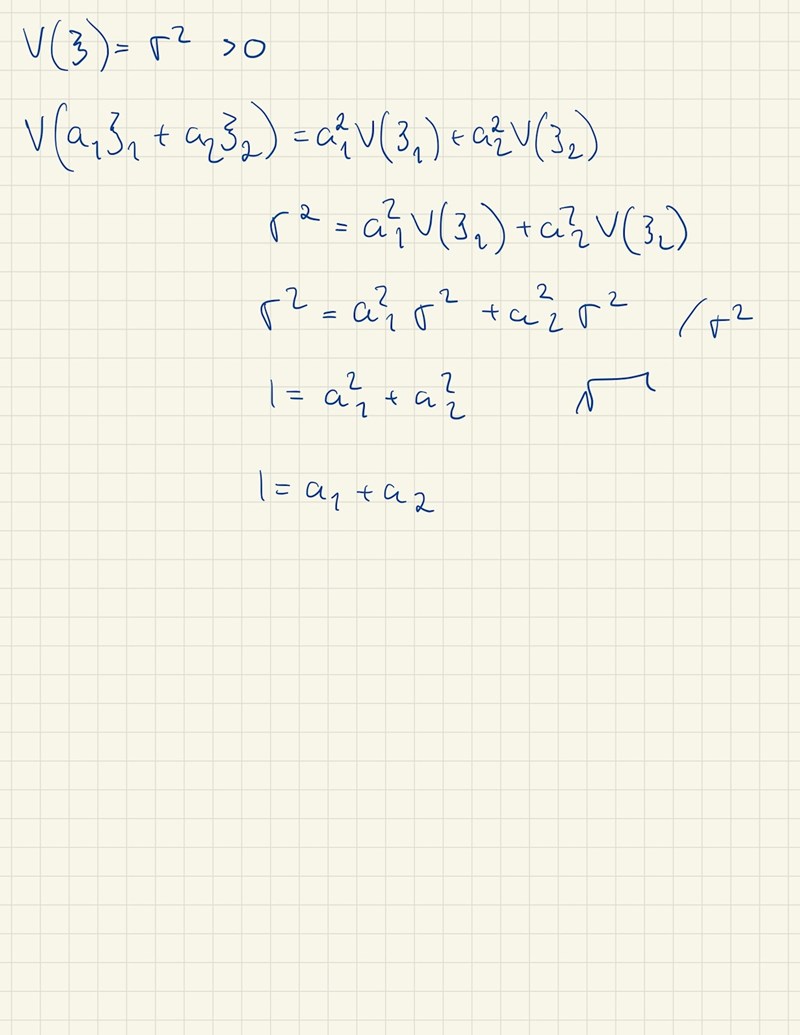 V(ξ) = σ² > 0
V(a₁ξ₁ + a₂ξ₂) = a₁²V(ξ₁) + a₂²V(ξ₂)
σ² = a₁²V(ξ₁) + a₂²V(ξ₂)
σ² = a₁²σ² + a₂²σ² /σ²
1 = a₁² + a₂² √
1 = a₁ + a₂